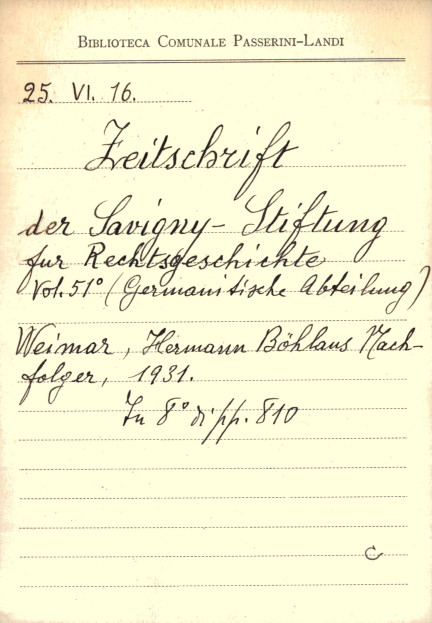 BIBLIOTECA COMUNALE PASSERINI-LANDI
25. VI. 16.
Zeitschrift
der Savigny-Stiftung
fur Rechtsgeschichte
Vol. 51° (Germanitische Abteilung)
Weimar, Hermann Böhlaus Nach-
folger, 1931.
In 8° di pp. 810
C